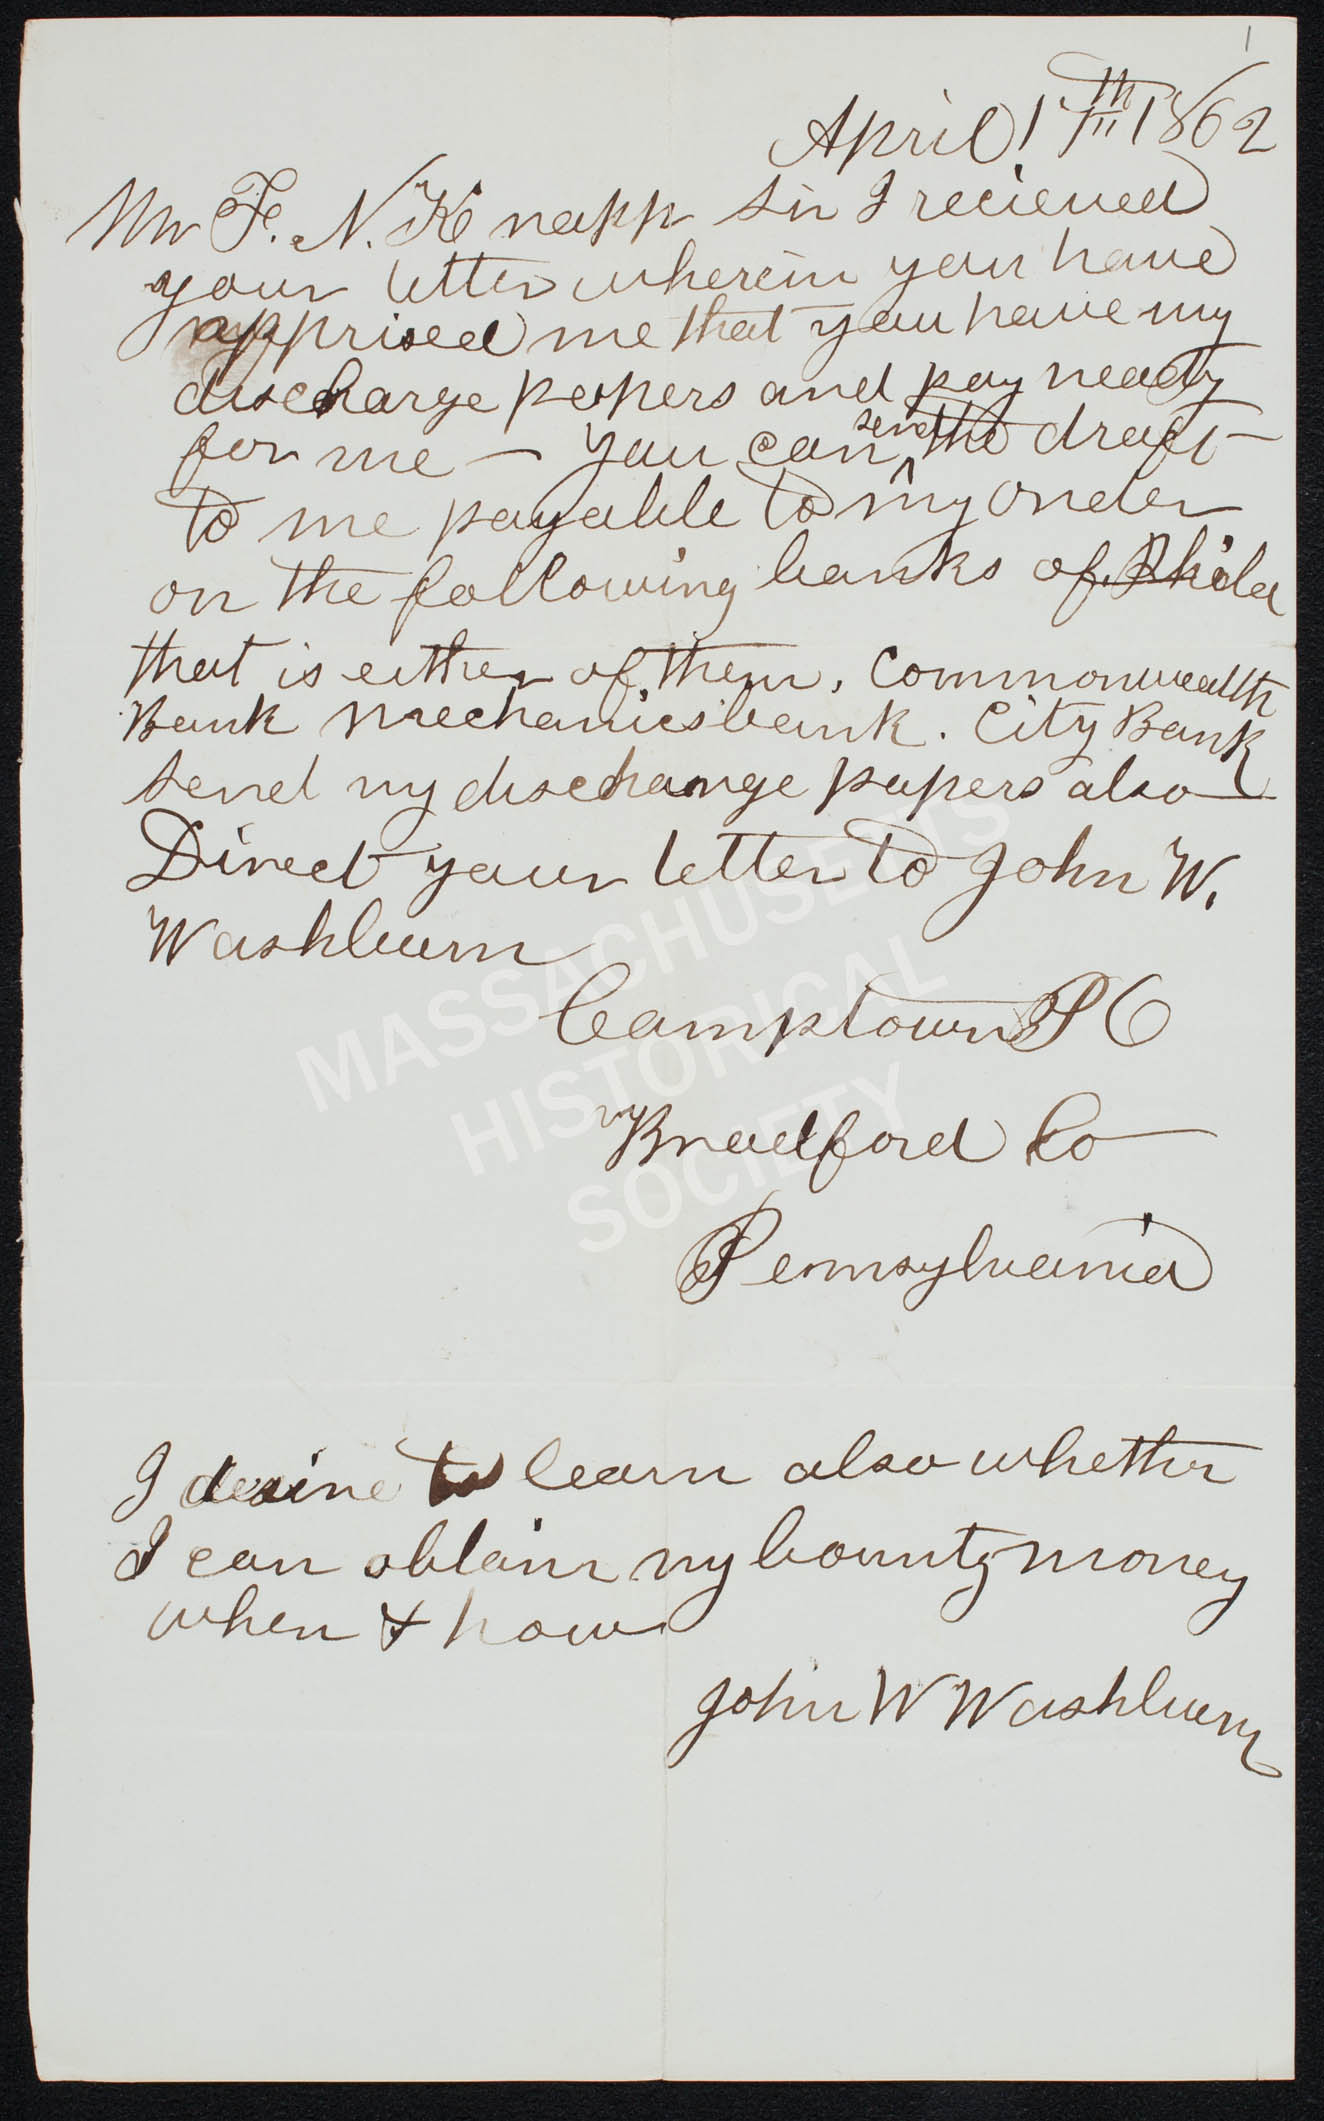 1
April 17th 1862
Mr F. N. Knapp Sir I recieved
your letter wherein you have
apprised me that you have my
discharge papers and pay ready
for me — You can send the draft
to me payable to my order
on the following banks of Phila
that is either of them, Commonwealth
Bank Mechanics bank. City Bank
Send my discharge papers also
Direct your letter to John W.
Washburn
Camptown P O
Bradford Co
Pennsylvania
I desire to learn also whether
I can obtain my bounty money
when & how
John W Washburn
MASSACHUSETTS
HISTORICAL
SOCIETY